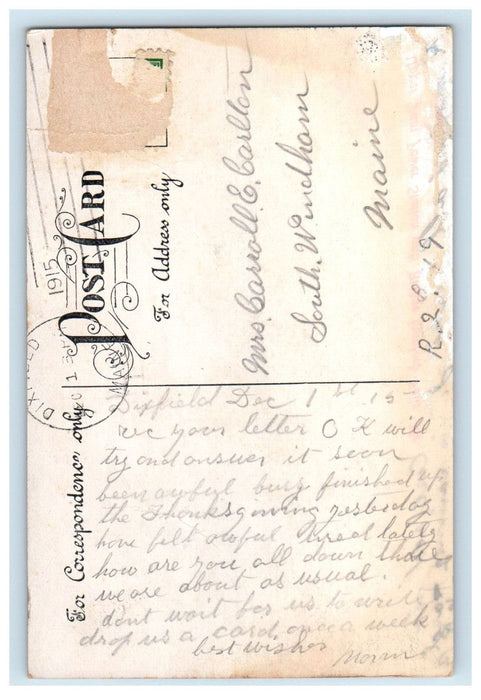 POST CARD
For Address only
For Correspondence only
DIXFIELD
1915
Mrs. Carroll E. Carlton
South Windham
Maine
Dixfield Dec 1st 15
rec your letter O K will
try and answer it soon
been awful busy finished up
the Thanksgiving yesterday
have felt awful tired lately
how are you all down there
we are about as usual.
dont wait for us to write
drop us a card once a week
best wishes